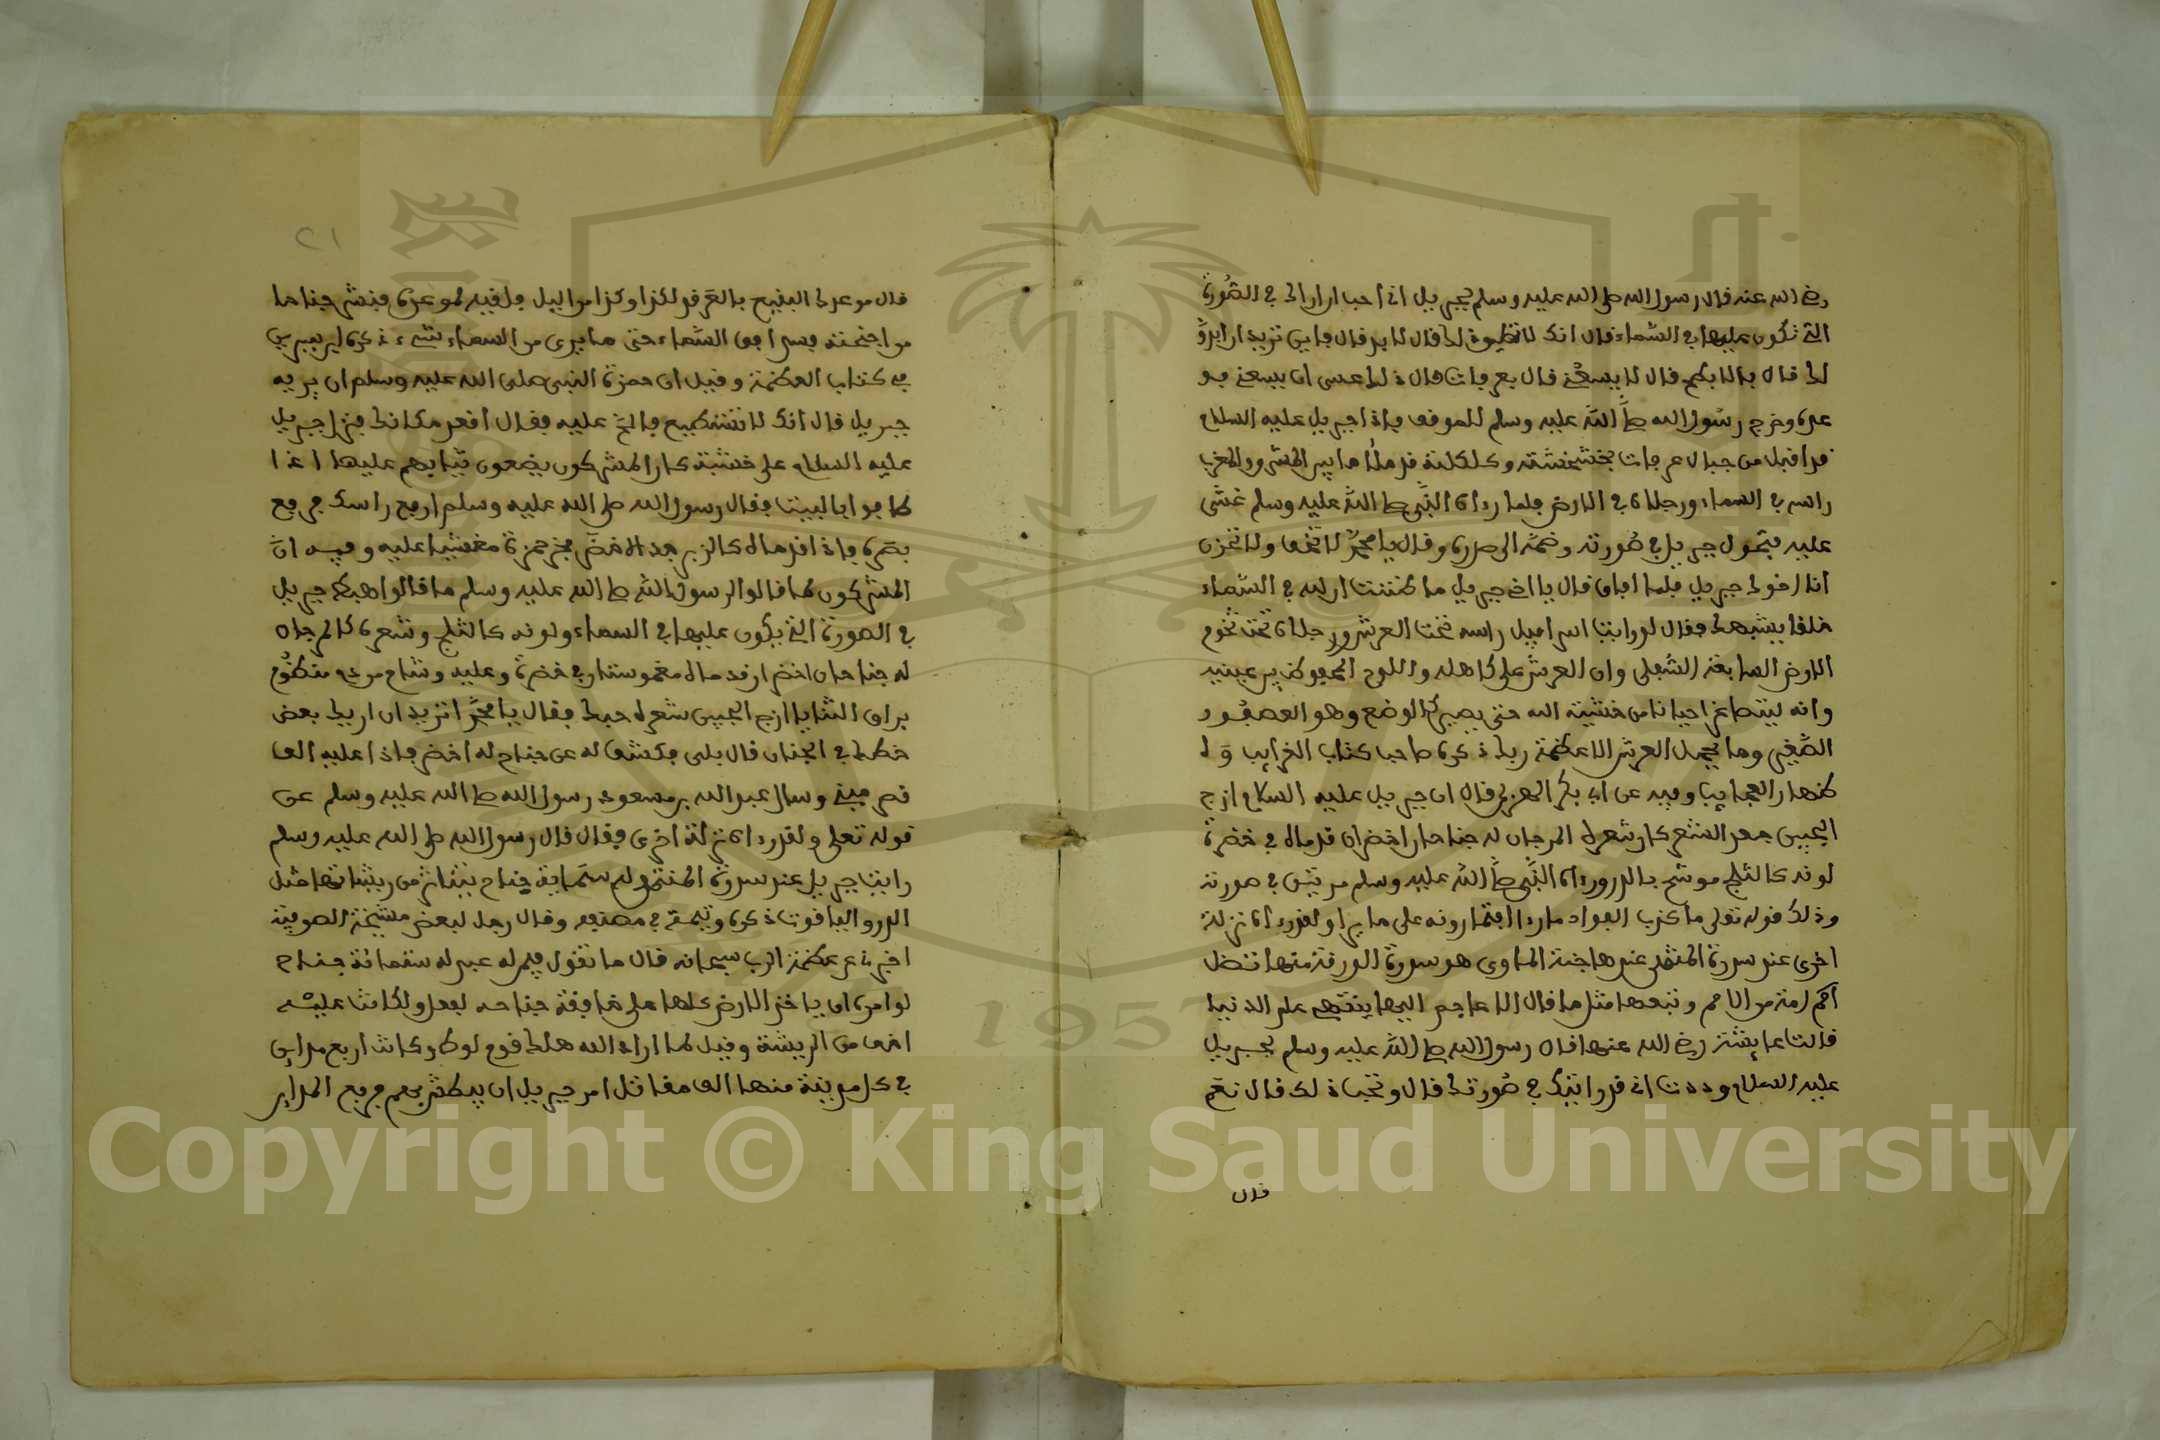 رضي الله عنه قال رسول الله صلى الله عليه وسلم لجبريل اني احب ان اراك في الصورة
التي تكون عليها في السماء قال انك لا تطيق ذلك قال لا بد قال فاين تريد ان ابدو
لك قال بالابطح قال لا يسعني قال بعرفات قال ذلك عسى ان يسعني فو
عده وخرج رسول الله صلى الله عليه وسلم للموقف فاذا جبريل عليه السلام
قد اقبل من جبال عرفات بخشخشة وكلكلة قد ملأ ما بين المشرق والمغرب
راسه في السماء ورجلاه في الارض فلما رءاه النبي صلى الله عليه وسلم غشي
عليه فتحول جبريل في صورته وضمه الى صدره وقال يا محمد لا تخف ولا تحزن
انا اخوك جبريل فلما افاق قال يا اخي جبريل ما ظننت ان لله في السماء
خلقا يشبهك فقال لو رايت اسرافيل راسه تحت العرش ورجلاه تحت تخوم
الارض السابعة السفلى وان العرش على كاهله واللوح المحفوظ بين عينيه
وانه ليتصاغر احيانا من خشية الله حتى يصير كالوضع وهو العصفور
الصغير وما يحمل العرش الا عظمة ربك ذكره صاحب كتاب الغرايب و
العجايب وفيه عن ابي بكر الهذلي قال ان جبريل عليه السلام ازج
الجبين جعد الشعر كان شعره المرجان له جناحان اخضران قدماه في خضرة
لونه كالثلج موشح بالدر ورءاه النبي صلى الله عليه وسلم مرتين في صورته
وذلك قوله تعلى ما كذب الفواد ما رءا افتمارونه على ما يرا ولقد رءاه نزلة
اخرى عند سدرة المنتهى عندها جنة الماوى هو سدرة الورقة منها تظل
امة من الامم ونبعها مثل ما قال الاعاجم اليها ينتهي علم الدنيا
قالت عايشة رضي الله عنها قال رسول الله صلى الله عليه وسلم لجبريل
عليه السلام وددت اني قد رايتك في صورتك قال وتحب ذلك قال نعم
قال
٢١
قال موعدك البقيع بالغرقد لكذا وكذا من اليل فلقيه لموعده فنشر جناحا
من اجنحته فسد افق السماء حتى ما يرى من السماء شيء ذكره
في كتاب العظمة وقيل ان حمزة سال النبي صلى الله عليه وسلم ان يريه
جبريل قال انك لا تستطيع فالح عليه فقال اقعد مكانك فنزل جبريل
عليه السلام على خشبة كان المشركون يضعون ثيابهم عليها اذا
طافوا بالبيت فقال رسول الله صلى الله عليه وسلم ارفع راسك فرفع
بصره فاذا قدماه كالزبرجد الاخضر فخر حمزة مغشيا عليه وفيه ان
المشركون لما قالوا لرسول الله صلى الله عليه وسلم ما قالوا هبط جبريل
في الصورة التي يكون عليها في السماء ولونه كالثلج وشعره كالمرجان
له جناحان اخضران قدماه مغموستان في خضرة وعليه وشاح من در منظوم
براق الثنايا ازج الجبين شعره حبك فقال يا محمد اتريد ان اريك بعض
خطك في الجنان قال بلى فكشف له عن جناح له اخضر فاذا عليه الف
قصر مبني وسال عبد الله بن مسعود رسول الله صلى الله عليه وسلم عن
قوله تعلى ولقد رءاه نزلة اخرى فقال قال رسول الله صلى الله عليه وسلم
رايت جبريل عند سدرة المنتهى وله ستماية جناح ينتثر من ريشاتها مثل
الدر والياقوت ذكره في مصنفه وقال رجل لبعض مشيخة الصوفية
اخبرني عن عظمة الرب سبحانه قال ما تقول فيمن له عبد له ستمائة جناح
لو امره ان ياخذ الارض كلها على خافقة جناحه لفعل ولكانت عليشه
اخف من الريشة وقيل لما اراد الله هلاك قوم لوط وكانت اربع مداين
في كل مدينة منها الف مقاتل امر جبريل ان يبطش بهم فرفع المداين